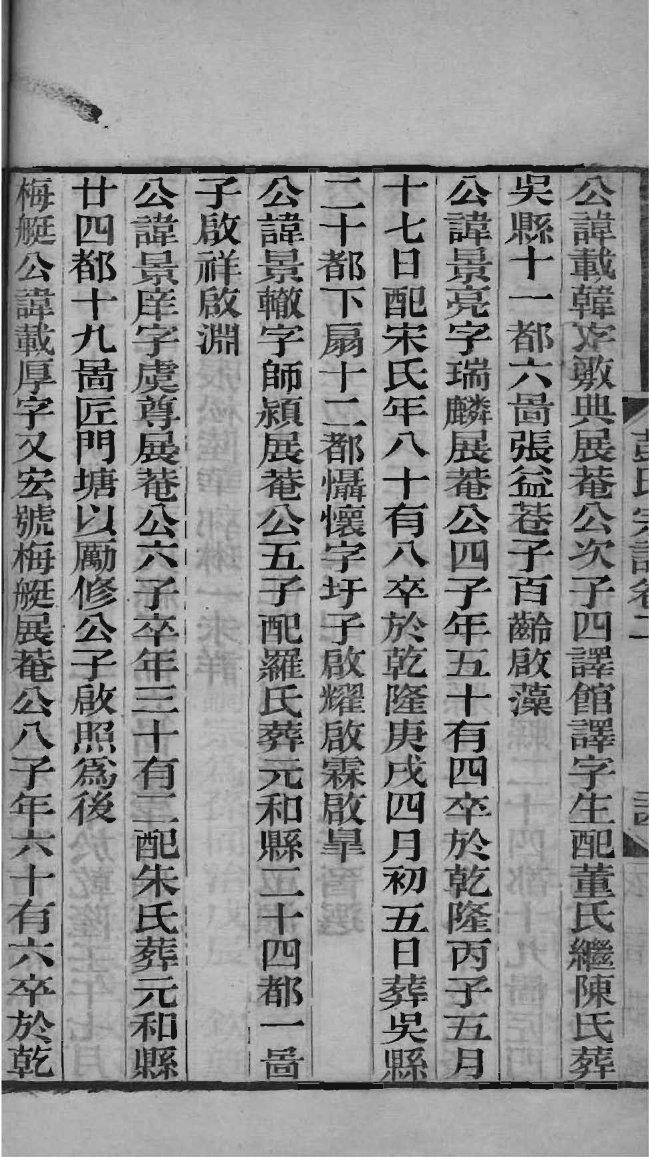 彭氏宗譜卷二
譜
公諱載韓字敭典展菴公次子四譯館譯字生配董氏繼陳氏葬
吳縣十一都六啚張益巷子百齡啟藻
公諱景亮字瑞麟展菴公四子年五十有四卒於乾隆丙子五月
十七日配宋氏年八十有八卒於乾隆庚戌四月初五日葬吳縣
二十都下扇十二都懾懷字圩子啟耀啟霖啟皐
公諱景轍字師潁展菴公五子配羅氏葬元和縣二十四都一啚
子啟祥啟淵
公諱景庠字虞尊展菴公六子卒年三十有二配朱氏葬元和縣
廿四都十九啚匠門塘以勵修公子啟照爲後
梅艇公諱載厚字又宏號梅艇展菴公八子年六十有六卒於乾